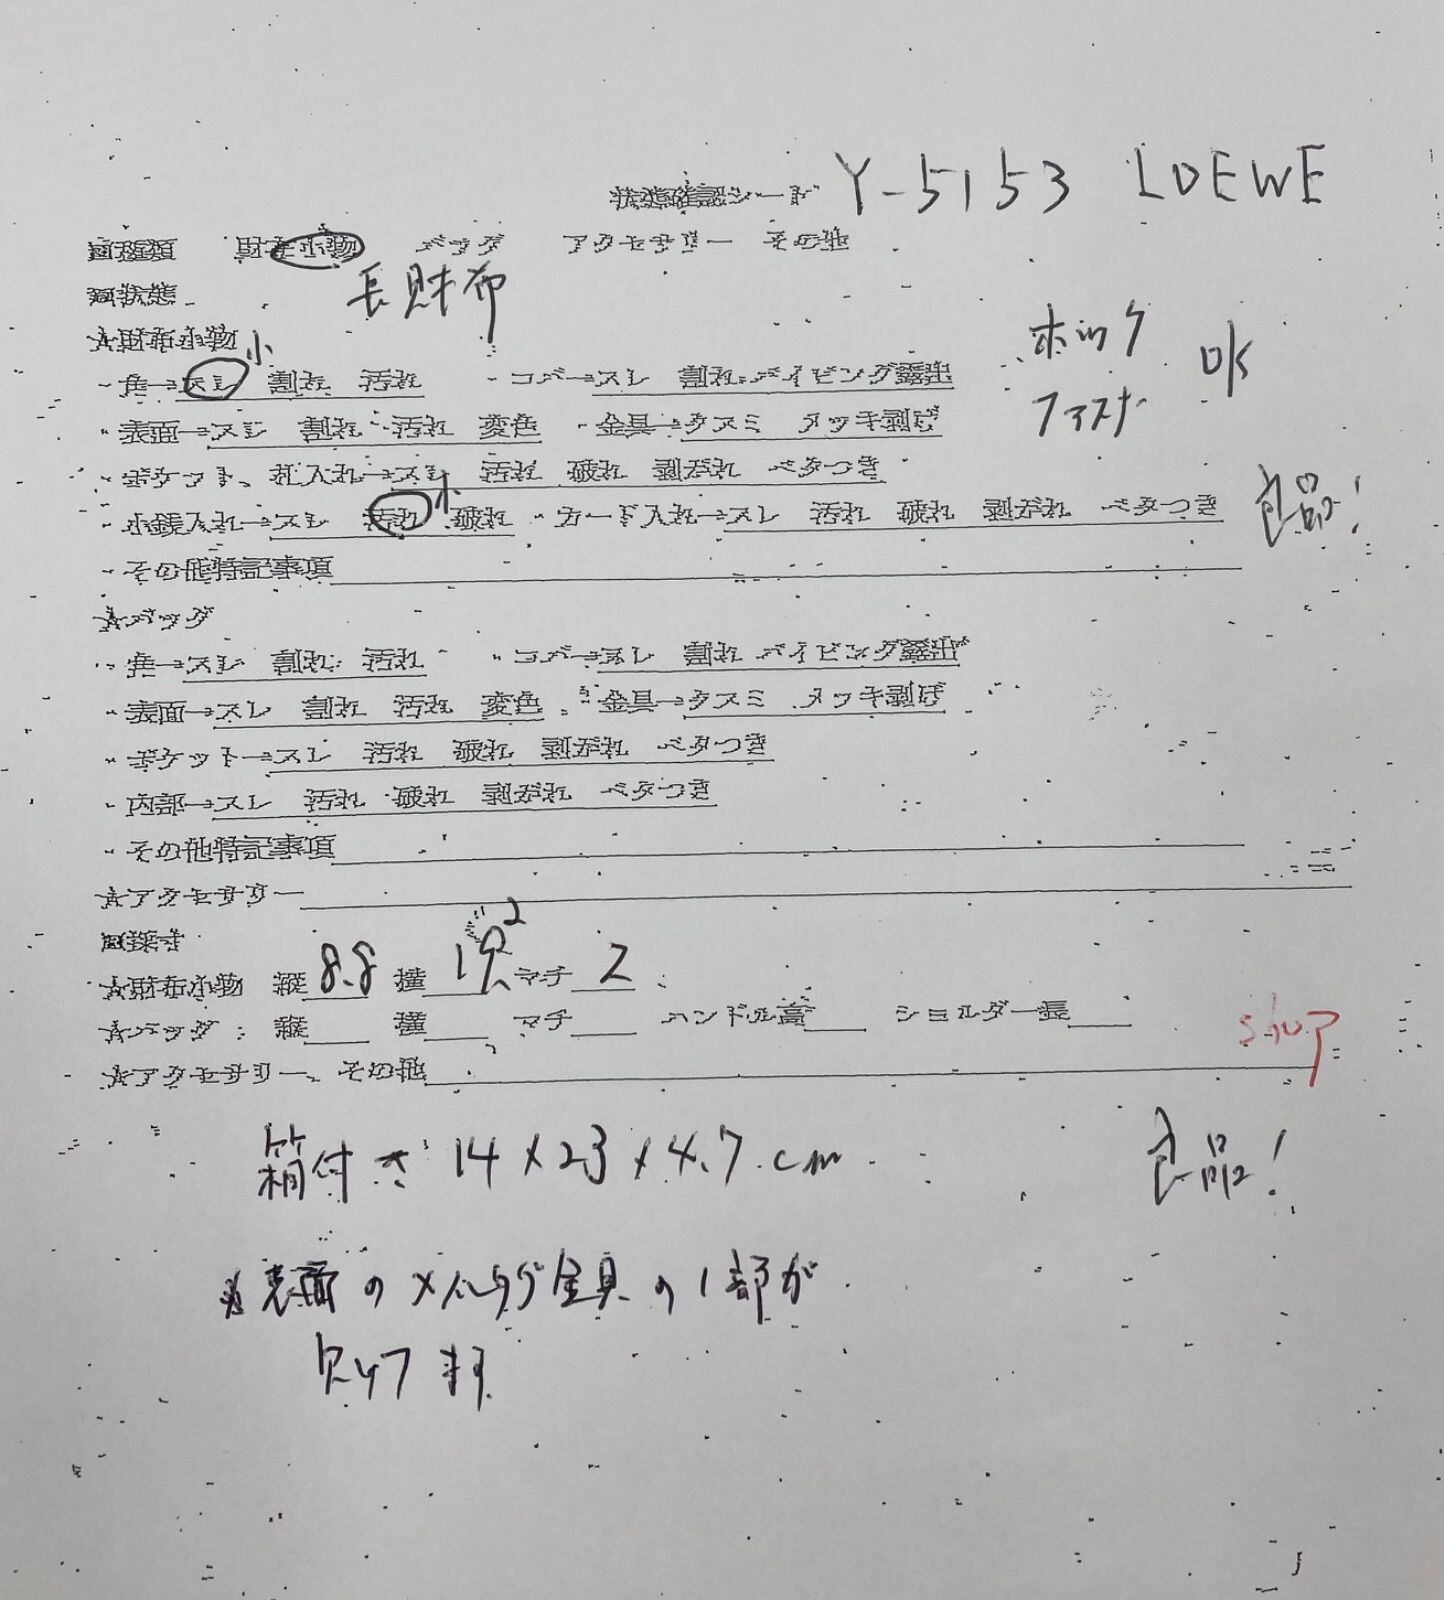 状態確認シート Y-5153 LOEWE
□種類 財布小物 バッグ アクセサリー その他
□状態 長財布
☆財布小物
・角→スレ 小 割れ 汚れ ・コバ→スレ 割れ パイピング露出
ホック
ファスナー OK
・表面→スレ 割れ 汚れ 変色 ・金具→クスミ メッキ剥げ
・ポケット、札入れ→スレ 汚れ 破れ 剥がれ ベタつき
・小銭入れ→スレ 汚れ 小 破れ ・カード入れ→スレ 汚れ 破れ 剥がれ ベタつき 良品!
・その他特記事項
☆バッグ
・角→スレ 割れ 汚れ ・コバ→スレ 割れ パイピング露出
・表面→スレ 割れ 汚れ 変色 ・金具→クスミ メッキ剥げ
・ポケット→スレ 汚れ 破れ 剥がれ ベタつき
・内部→スレ 汚れ 破れ 剥がれ ベタつき
・その他特記事項
☆アクセサリー
□採寸
☆財布小物 縦 8.8 横 マチ 2
☆バッグ 縦 横 マチ ハンドル高 ショルダー長
shop
☆アクセサリー、その他
箱付き 14×23×4.7cm 良品!
表面の 金具の1部が
欠けてます